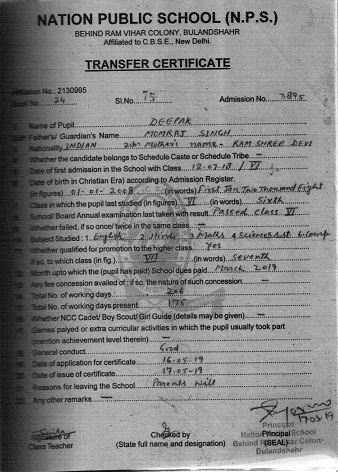 NATION PUBLIC SCHOOL (N.P.S.)
BEHIND RAM VIHAR COLONY, BULANDSHAHR
Affiliated to C.B.S.E., New Delhi.
TRANSFER CERTIFICATE
Affiliation No.: 2130995
Book No. 24 Sl.No. 75 Admission No. 3895
Name of Pupil DEEPAK
Father's/ Guardian's Name MOMRAJ SINGH
Nationality INDIAN Mother's name- RAM SHREE DEVI
Whether the candidate belongs to Schedule Caste or Schedule Tribe –
Date of first admission in the School with Class 12-07-18 / VI
Date of birth in Christian Era) according to Admission Register.
(in figures) 01-01-2008 (in words) First Jan Two Thousand Eight
Class in which the pupil last studied (in figures) VI (in words) Sixth
School/ Board Annual examination last taken with result Passed class VI
Whether failed, if so once/ twice in the same class –
Subject Studied : 1 English 2 Hindi 3 Maths 4 Science 5 S.St. 6 Comp.
Whether qualified for promotion to the higher class Yes
If so, to which class (in fig.) VII (in words) seventh
Month upto which the (pupil has paid) School dues paid March 2019
Any fee concession availed of : if so, the nature of such concession –
Total No. of working days 206
Total No. of working days present 175
Whether NCC Cadet/ Boy Scout/ Girl Guide (details may be given) –
Games palyed or extra curricular activities in which the pupil usually took part
(mention achievement level therein) –
General conduct Good
Date of application for certificate 16-05-19
Date of issue of certificate 17-05-19
Reasons for leaving the School Parents Will
Any other remarks –
17.05.19
Signature of Checked by Principal
Class Teacher (State full name and designation) (SEAL)
Principal
Nation Public School
Behind Ram Vihar Colony
Bulandshahr